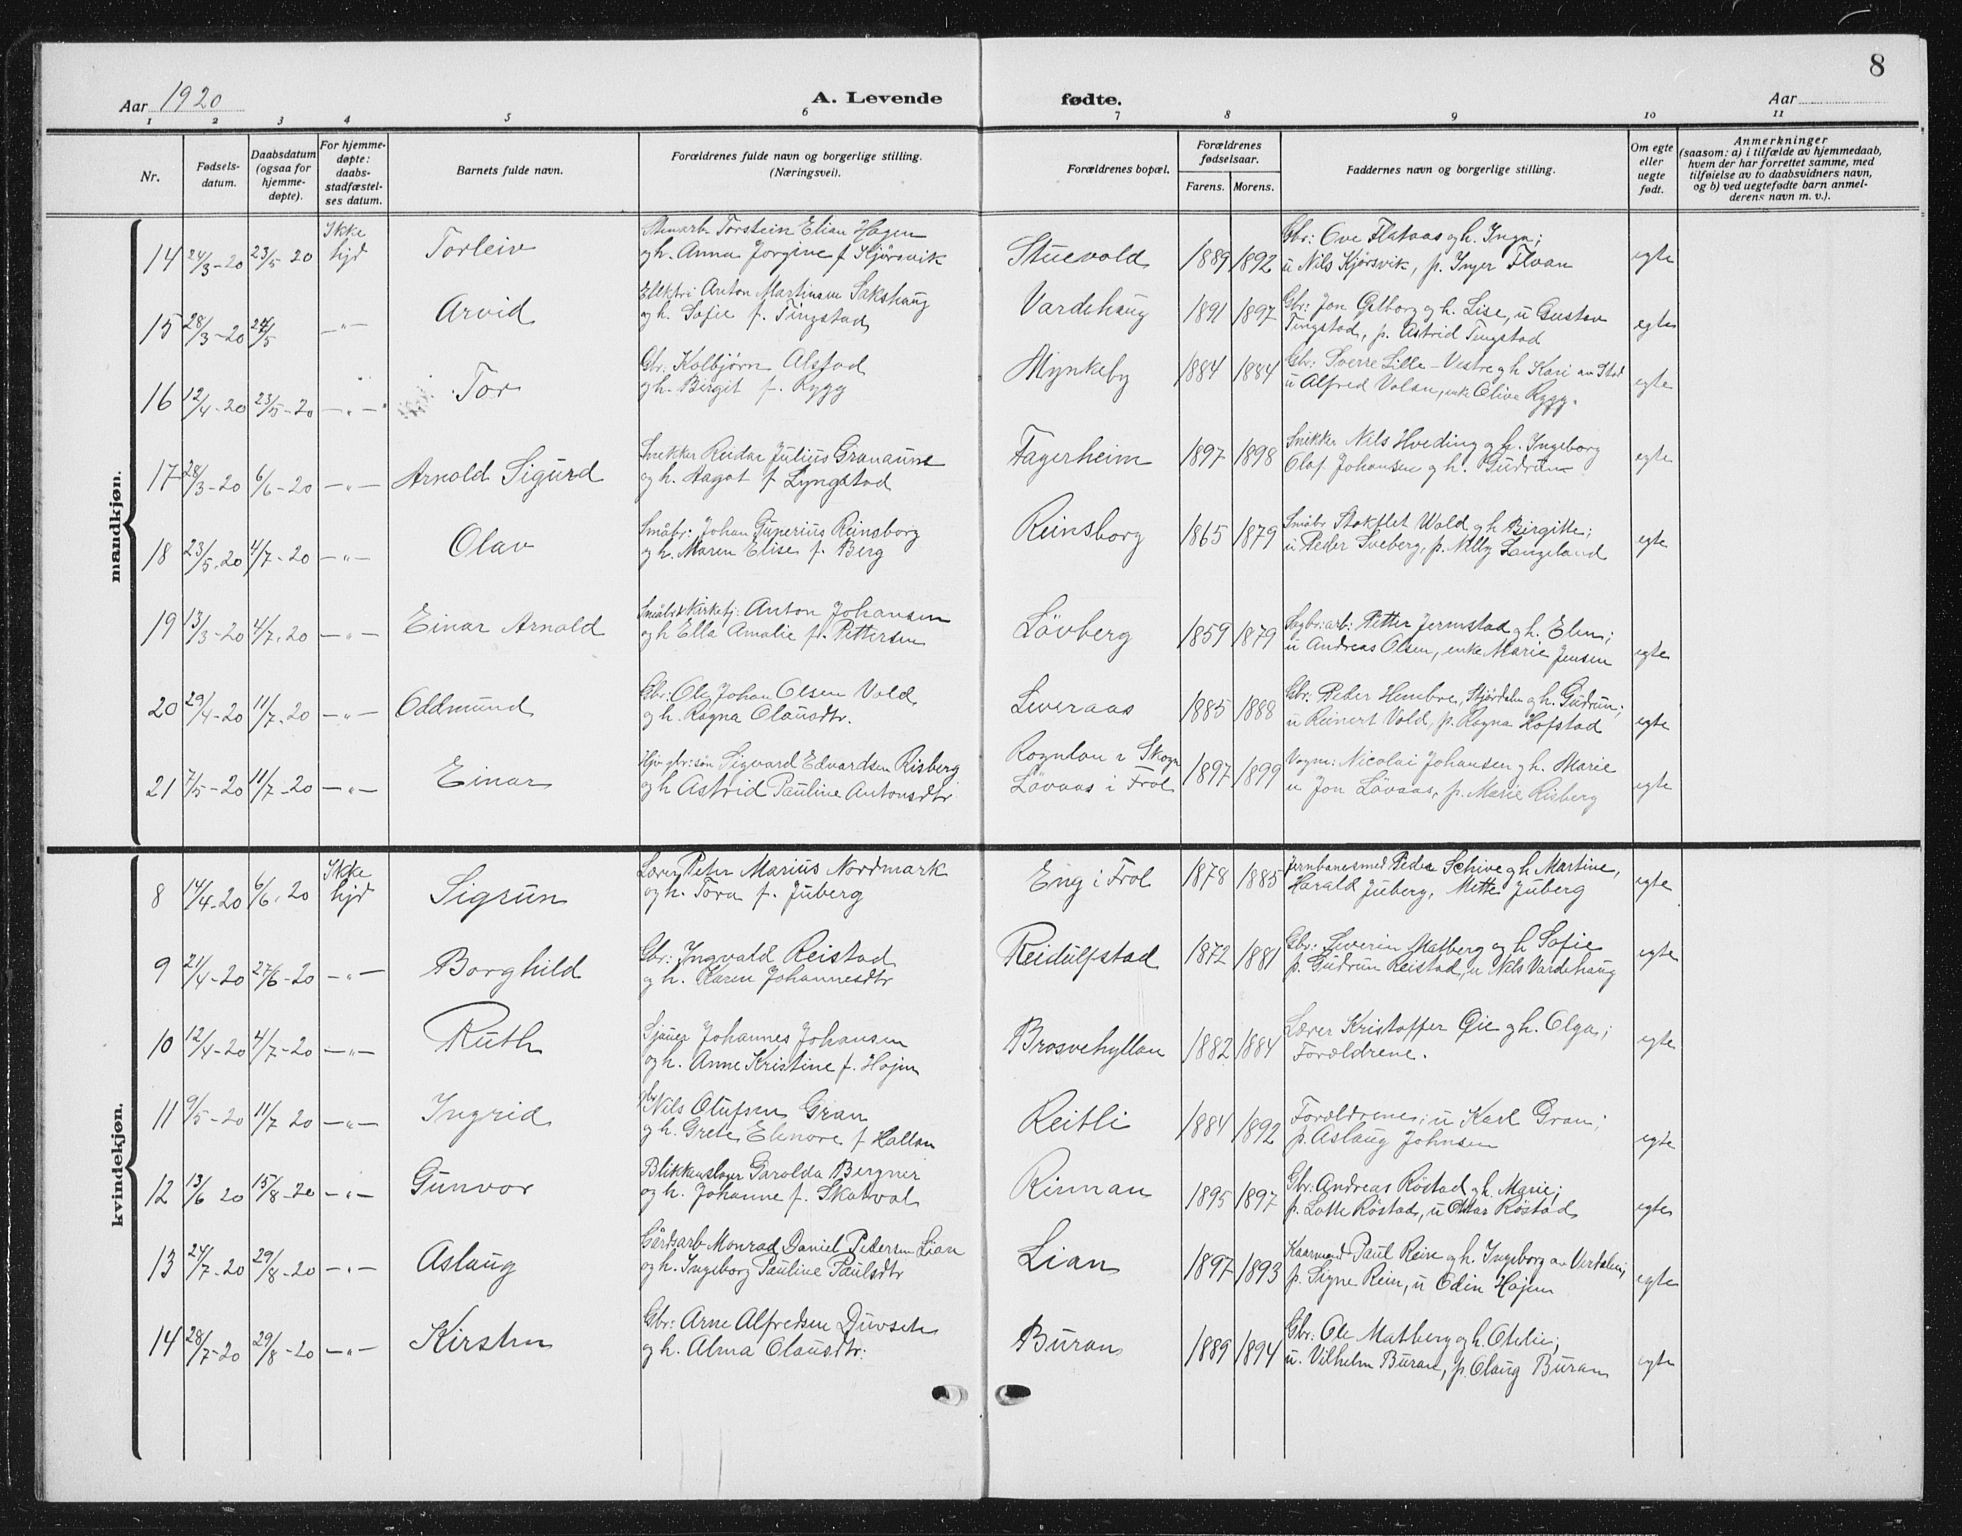 8
Aar 1920
A. Levende fødte.
Aar
1 2 3 4 5 6 7 8 9 10 11
Nr.
Fødsels-
datum.
Daabsdatum
(ogsaa for
hjemme-
døpte).
For hjemme-
døpte:
daabs-
stadfæstel-
ses datum.
Barnets fulde navn.
Forældrenes fulde navn og borgerlige stilling.
(Næringsvei).
Forældrenes bopæl.
Forældrenes
fødselsaar.
Farens. Morens.
Faddernes navn og borgerlige stilling.
Om egte
eller
uegte
født.
Anmerkninger
(saasom: a) i tilfælde av hjemmedaab,
hvem der har forrettet samme, med
tilføielse av to daabsvidners navn,
og b) ved uegtefødte barn anmel-
derens navn m. v.).
mandkjøn.
14 24/3-20 23/5-20 Ikke hjd Torleiv
Torstein Elian Hagen
og h. Anna Jorgine f. Kjørsvik
Stuevold 1889 1892
Gbr: Ove Flataas og h. Inga;
u Nils Kjørsvik, p. Inger Floan
egte
15 28/3-20 24/5 -"- Arvid
Elektri Anton Martinsen Sakshaug
og h. Sofie f. Tingstad
Vardehaug 1891 1897
Gbr: Jon Gilborg og h. Lise, u Gustav
Tingstad, p. Astrid Tingstad
egte
16 12/4-20 23/5-20 -"- Tor
Gbr. Kolbjørn Alstad
og h. Birgit f. Rygg
Mynkeby 1884 1884
Gbr: Sverre Lille-Vestre og h. Kari av Stod
u Alfred Volan, enke Olive Rygg.
egte
17 28/3-20 6/6-20 -"- Arnold Sigurd
Snekker Reidar Julius Granaune
og h. Aagot f. Lyngstad
Fagerheim 1897 1898
Snikker Nils Hveding og h. Ingeborg
Olaf Johansen og h. Gudrun
egte
18 23/5-20 4/7-20 -"- Olav
Småbr: Johan Reinsborg
og h. Maren Elise f. Berg
Reinsborg 1865 1879
Småbr Wold og h Birgitte;
u Peder Sveberg, p. Nelly Langeland
egte
19 13/3-20 4/7-20 -"- Einar Arnold
Småbr & Kirketj: Anton Johansen
og h Ella Amalie f. Pettersen
Lövberg 1859 1879
Sagbr:arb: Petter Jermstad og h. Elen;
u Andreas Olsen, enke Marie Jensen
egte
20 29/4-20 11/7-20 -"- Oddmund
Gbr: Ole Johan Olsen Vold
og h. Ragna Olausdtr.
Leveraas 1885 1888
Gbr: Peder Hembre, Stjørdalen og h. Gudrun;
u Reinert Vold, p. Ragna Hofstad
egte
21 7/5-20 11/7-20 -"- Einar
gbr:søn Sigvard Edvardsen Risberg
og h Astrid Pauline Antonsdtr
Rognlan i Skogn
Lövaas i Frol
1897 1899
Vogm: Nicolai Johansen og h. Marie
u Jon Lövaas, p. Marie Risberg
egte
kvindekjøn.
8 14/4-20 6/6-20 Ikke hjd Sigrun
Lærer Peter Marius Nordmark
og h. Tora f. Juberg
Eng i Frol 1878 1885
Jernbanesmed Peder Schive og h Martine,
Harald Juberg, Mette Juberg
egte
9 21/4-20 27/6-20 -"- Borghild
Gbr: Ingvald Reistad
og h. Karen Johannesdtr
Reidulfstad 1872 1881
Gbr: Severin Matberg og h Sofie
p. Gudrun Reistad, u Nils Vardehaug
egte
10 12/4-20 4/7-20 -"- Ruth
Sjauer Johannes Johansen
og h. Anne Kristine f. Hojem
Brosvehyllan 1882 1884
Lærer Kristoffer Øie og h. Olga;
Forældrene.
egte
11 9/5-20 11/7 20 -"- Ingrid
gbr Nils Olufsen Gran
og h. Grete Elenore f Hallan
Reitli 1884 1892
Forældrene; u Karl Gran;
p. Aslaug Johnsen
egte
12 13/6 20 15/8-20 -"- Gunvor
Blikkenslager Garolda Bergner
og h. Johanne f. Skatval
Rinnan 1895 1897
Gbr: Andreas Röstad og h. Marie;
p. Lotte Röstad, u Ottar Röstad
egte
13 24/7-20 29/8-20 -"- Aslaug
Gårdsarb Monrad Daniel Pedersen Lian
og h. Ingeborg Pauline Paulsdtr
Lian 1897 1893
Kaarmand Paul Rein og h. Ingeborg av Verdalen;
p. Signe Rein, u Edin Hojem
egte
14 28/7-20 29/8-20 -"- Kirsten
Gbr: Arne Alfredsen Duvsete
og h. Alma Olausdtr:
Buran 1889 1894
Gbr: Ole Matberg og h. Otelie;
u. Vilhelm Buran, p. Olaug Buran
egte